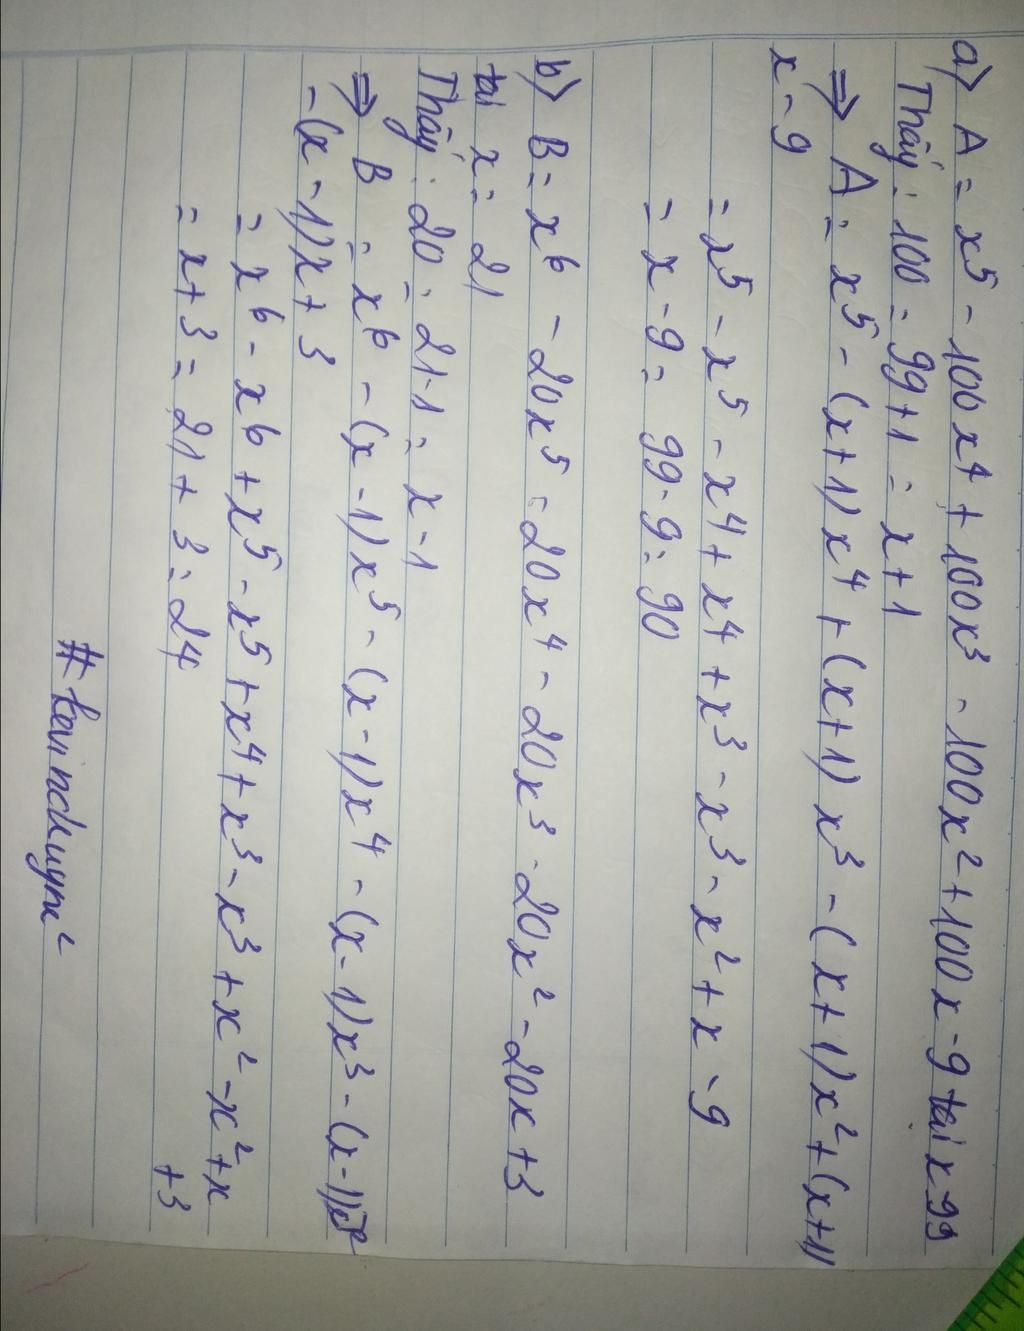 a) A = x⁵ - 100x⁴ + 100x³ - 100x² + 100x - 9 tại x 99
Thấy : 100 = 99 + 1 = x + 1
⇒ A = x⁵ - (x+1) x⁴ + (x+1) x³ - (x+1)x² + (x+1)
x - 9
= x⁵ - x⁵ - x⁴ + x⁴ + x³ - x³ - x² + x - 9
= x - 9 = 99 - 9 = 90
b) B = x⁶ - 20x⁵ - 20x⁴ - 20x³ - 20x² - 20x + 3
tại x = 21
Thấy : 20 = 21 - 1 = x - 1
⇒ B = x⁶ - (x - 1)x⁵ - (x - 1)x⁴ - (x - 1)x³ - (x - 1)x²
- (x - 1)x + 3
= x⁶ - x⁶ + x⁵ - x⁵ + x⁴ + x³ - x³ + x² - x² + x
+ 3
= x + 3 = 21 + 3 = 24